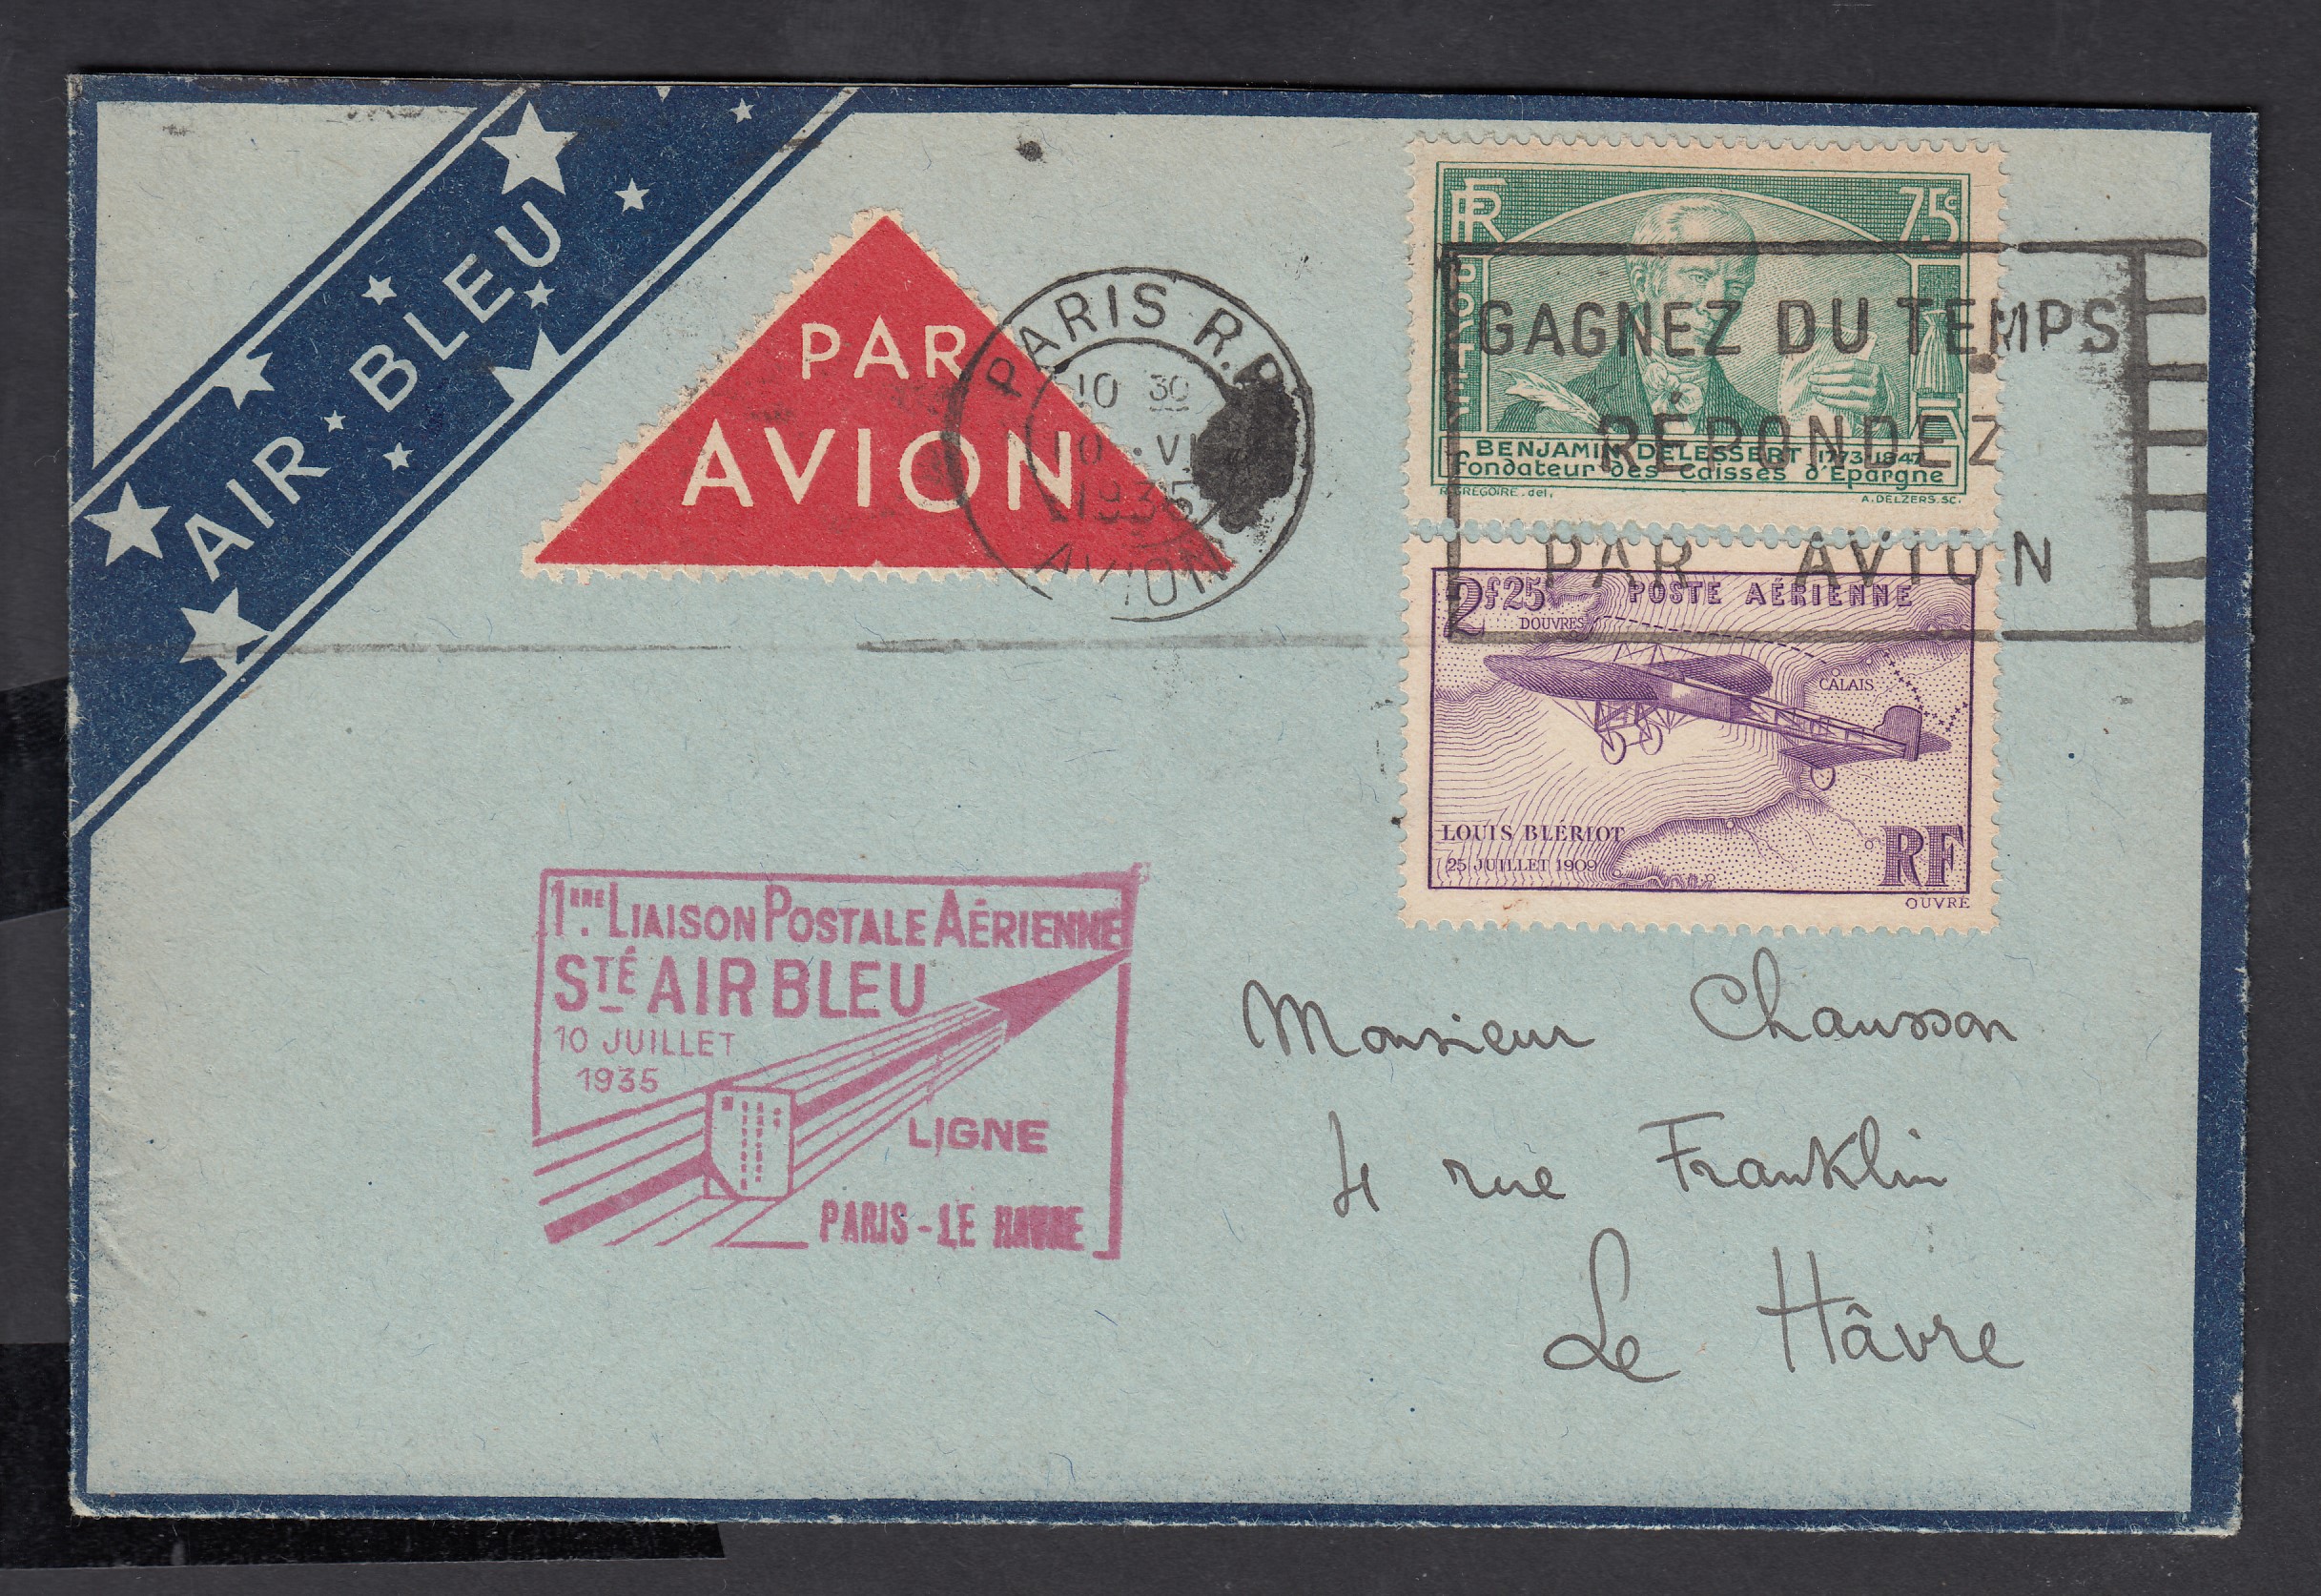 AIR BLEU
PAR
AVION
PARIS R.P.
10 30
10 . VI
1935
AVION
GAGNEZ DU TEMPS
RÉPONDEZ
PAR AVION
RF
75c
POSTES
BENJAMIN DELESSERT 1773-1847
fondateur des Caisses d'Epargne
R. GREGOIRE. del.
A. DELZERS. SC.
2f25
POSTE AÉRIENNE
DOUVRES
CALAIS
LOUIS BLÉRIOT
25 JUILLET 1909
RF
OUVRÉ
1ère LIAISON POSTALE AÉRIENNE
STÉ AIR BLEU
10 JUILLET
1935
LIGNE
PARIS - LE HAVRE
Monsieur Chausson
4 rue Franklin
Le Hâvre